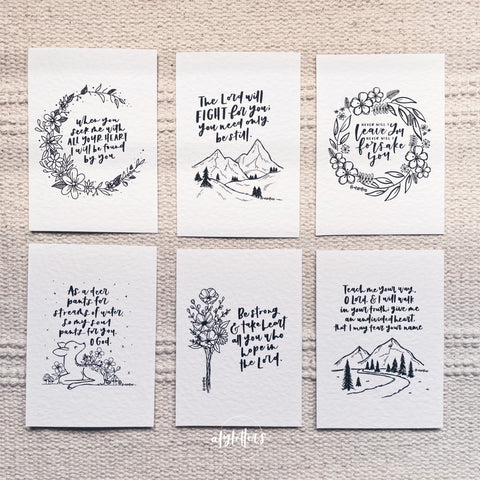 When you
seek me with
ALL YOUR HEART
I will be found
by you
The Lord will
FIGHT for you;
you need only
be still.
NEVER WILL I
leave you
NEVER WILL I
forsake
you
As a deer
pants for
streams of water,
so my soul
pants for you,
O God.
Be strong,
& take heart
all you who
hope in
the Lord.
Teach me your way,
O Lord, & I will walk
in your truth; give me
an undivided heart,
that I may fear your name